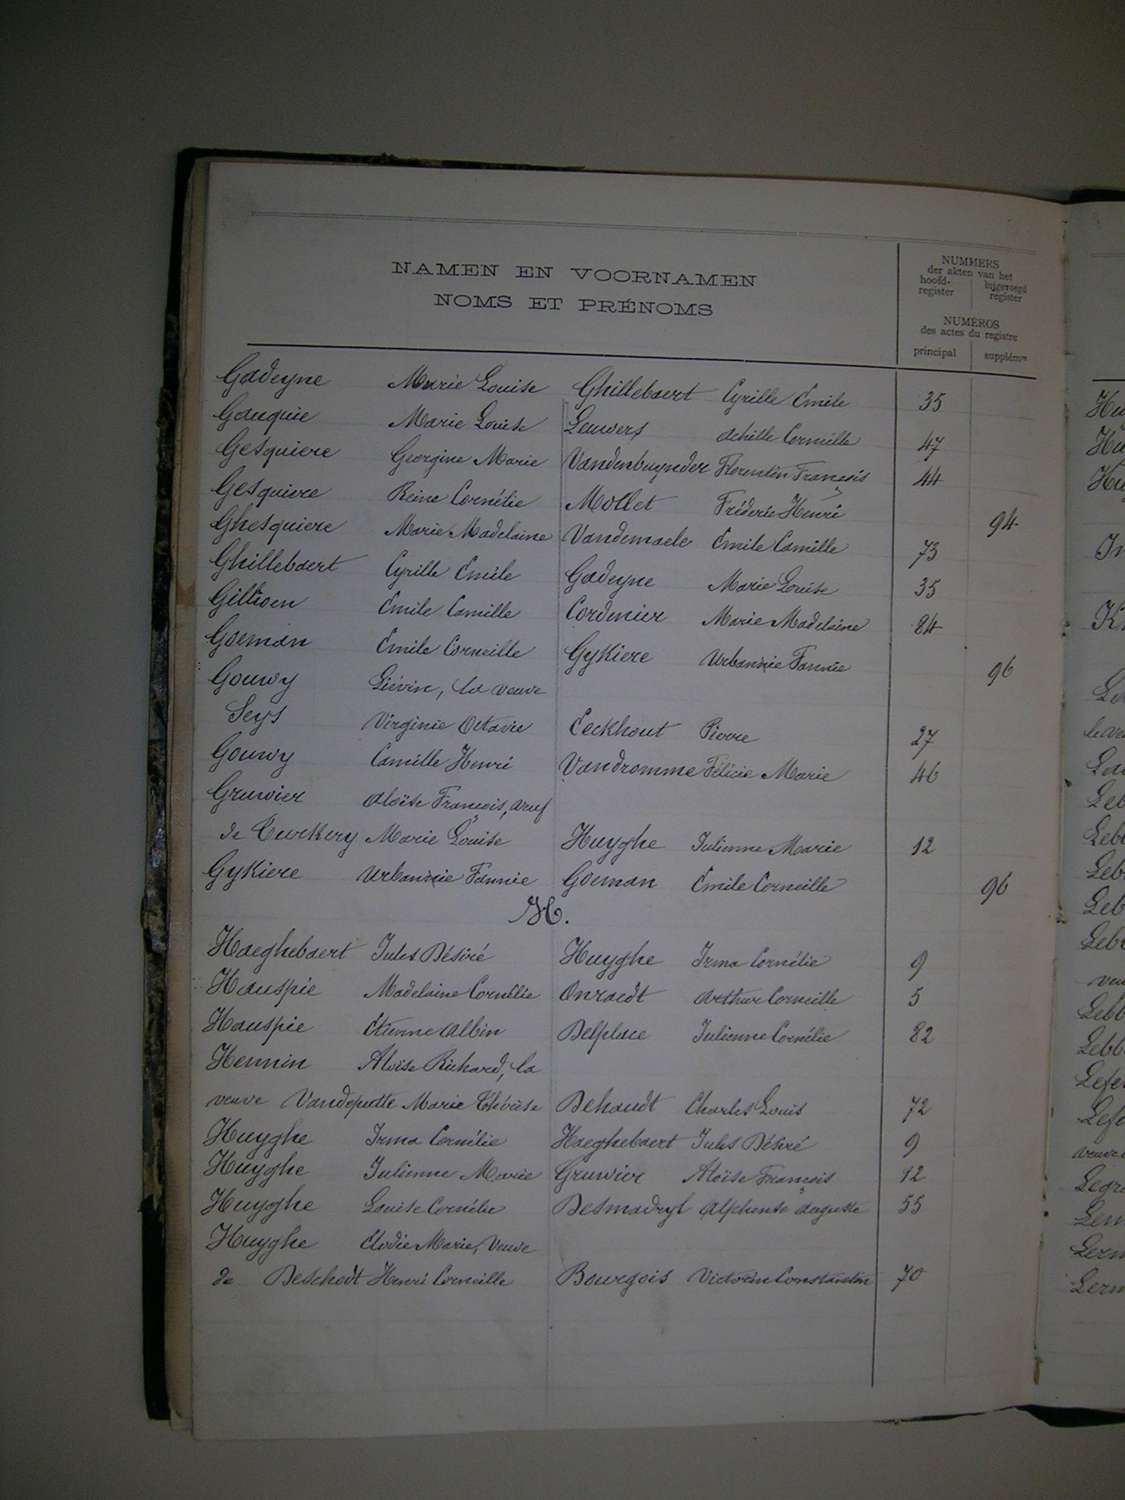 NAMEN EN VOORNAMEN
NOMS ET PRÉNOMS
NUMMERS
der akten van het
hoofd- bijgevoegd
register register
NUMÉROS
des actes du registre
principal supplémre
Gadeyne Marie Louise Ghillebaert Cyrille Emile 35
Gauquie Marie Louise Lauwers Achille Corneille 47
Gesquiere Georgine Marie Vandenbuynder Florentin François 44
Gesquiere Reine Cornélie Mollet Fréderic Henri 94
Ghesquiere Marie Madelaine Vandemaele Emile Camille 73
Ghillebaert Cyrille Emile Gadeyne Marie Louise 35
Gillioen Emile Camille Cordenier Marie Madelaine 84
Goeman Emile Corneille Gykiere Urbannie Fannie 96
Gouwy Liévin, la veuve
Seys Virginie Octavie Eeckhout Pierre 27
Gouwy Camille Henri Vandromme Félicie Marie 46
Gruwier Aloïse François, veuf
de Turckery Marie Louise Huyghe Julienne Marie 12
Gykiere Urbannie Fannie Goeman Emile Corneille 96
H.
Haeghebaert Jules Désiré Huyghe Irma Cornélie 9
Hauspie Madelaine Cornélie Onraedt Arthur Corneille 5
Hauspie Etienne Albin Delplace Julienne Cornélie 82
Hennin Aloïse Richard, la
veuve Vandeputte Marie Thérèse Dehaudt Charles Louis 72
Huyghe Irma Cornélie Haeghebaert Jules Désiré 9
Huyghe Julienne Marie Gruwier Aloïse François 12
Huyghe Louise Cornélie Desmadryl Alphonse Auguste 55
Huyghe Elodie Marie, Veuve
de Deschodt Henri Corneille Bourgois Victorin Constantin 70